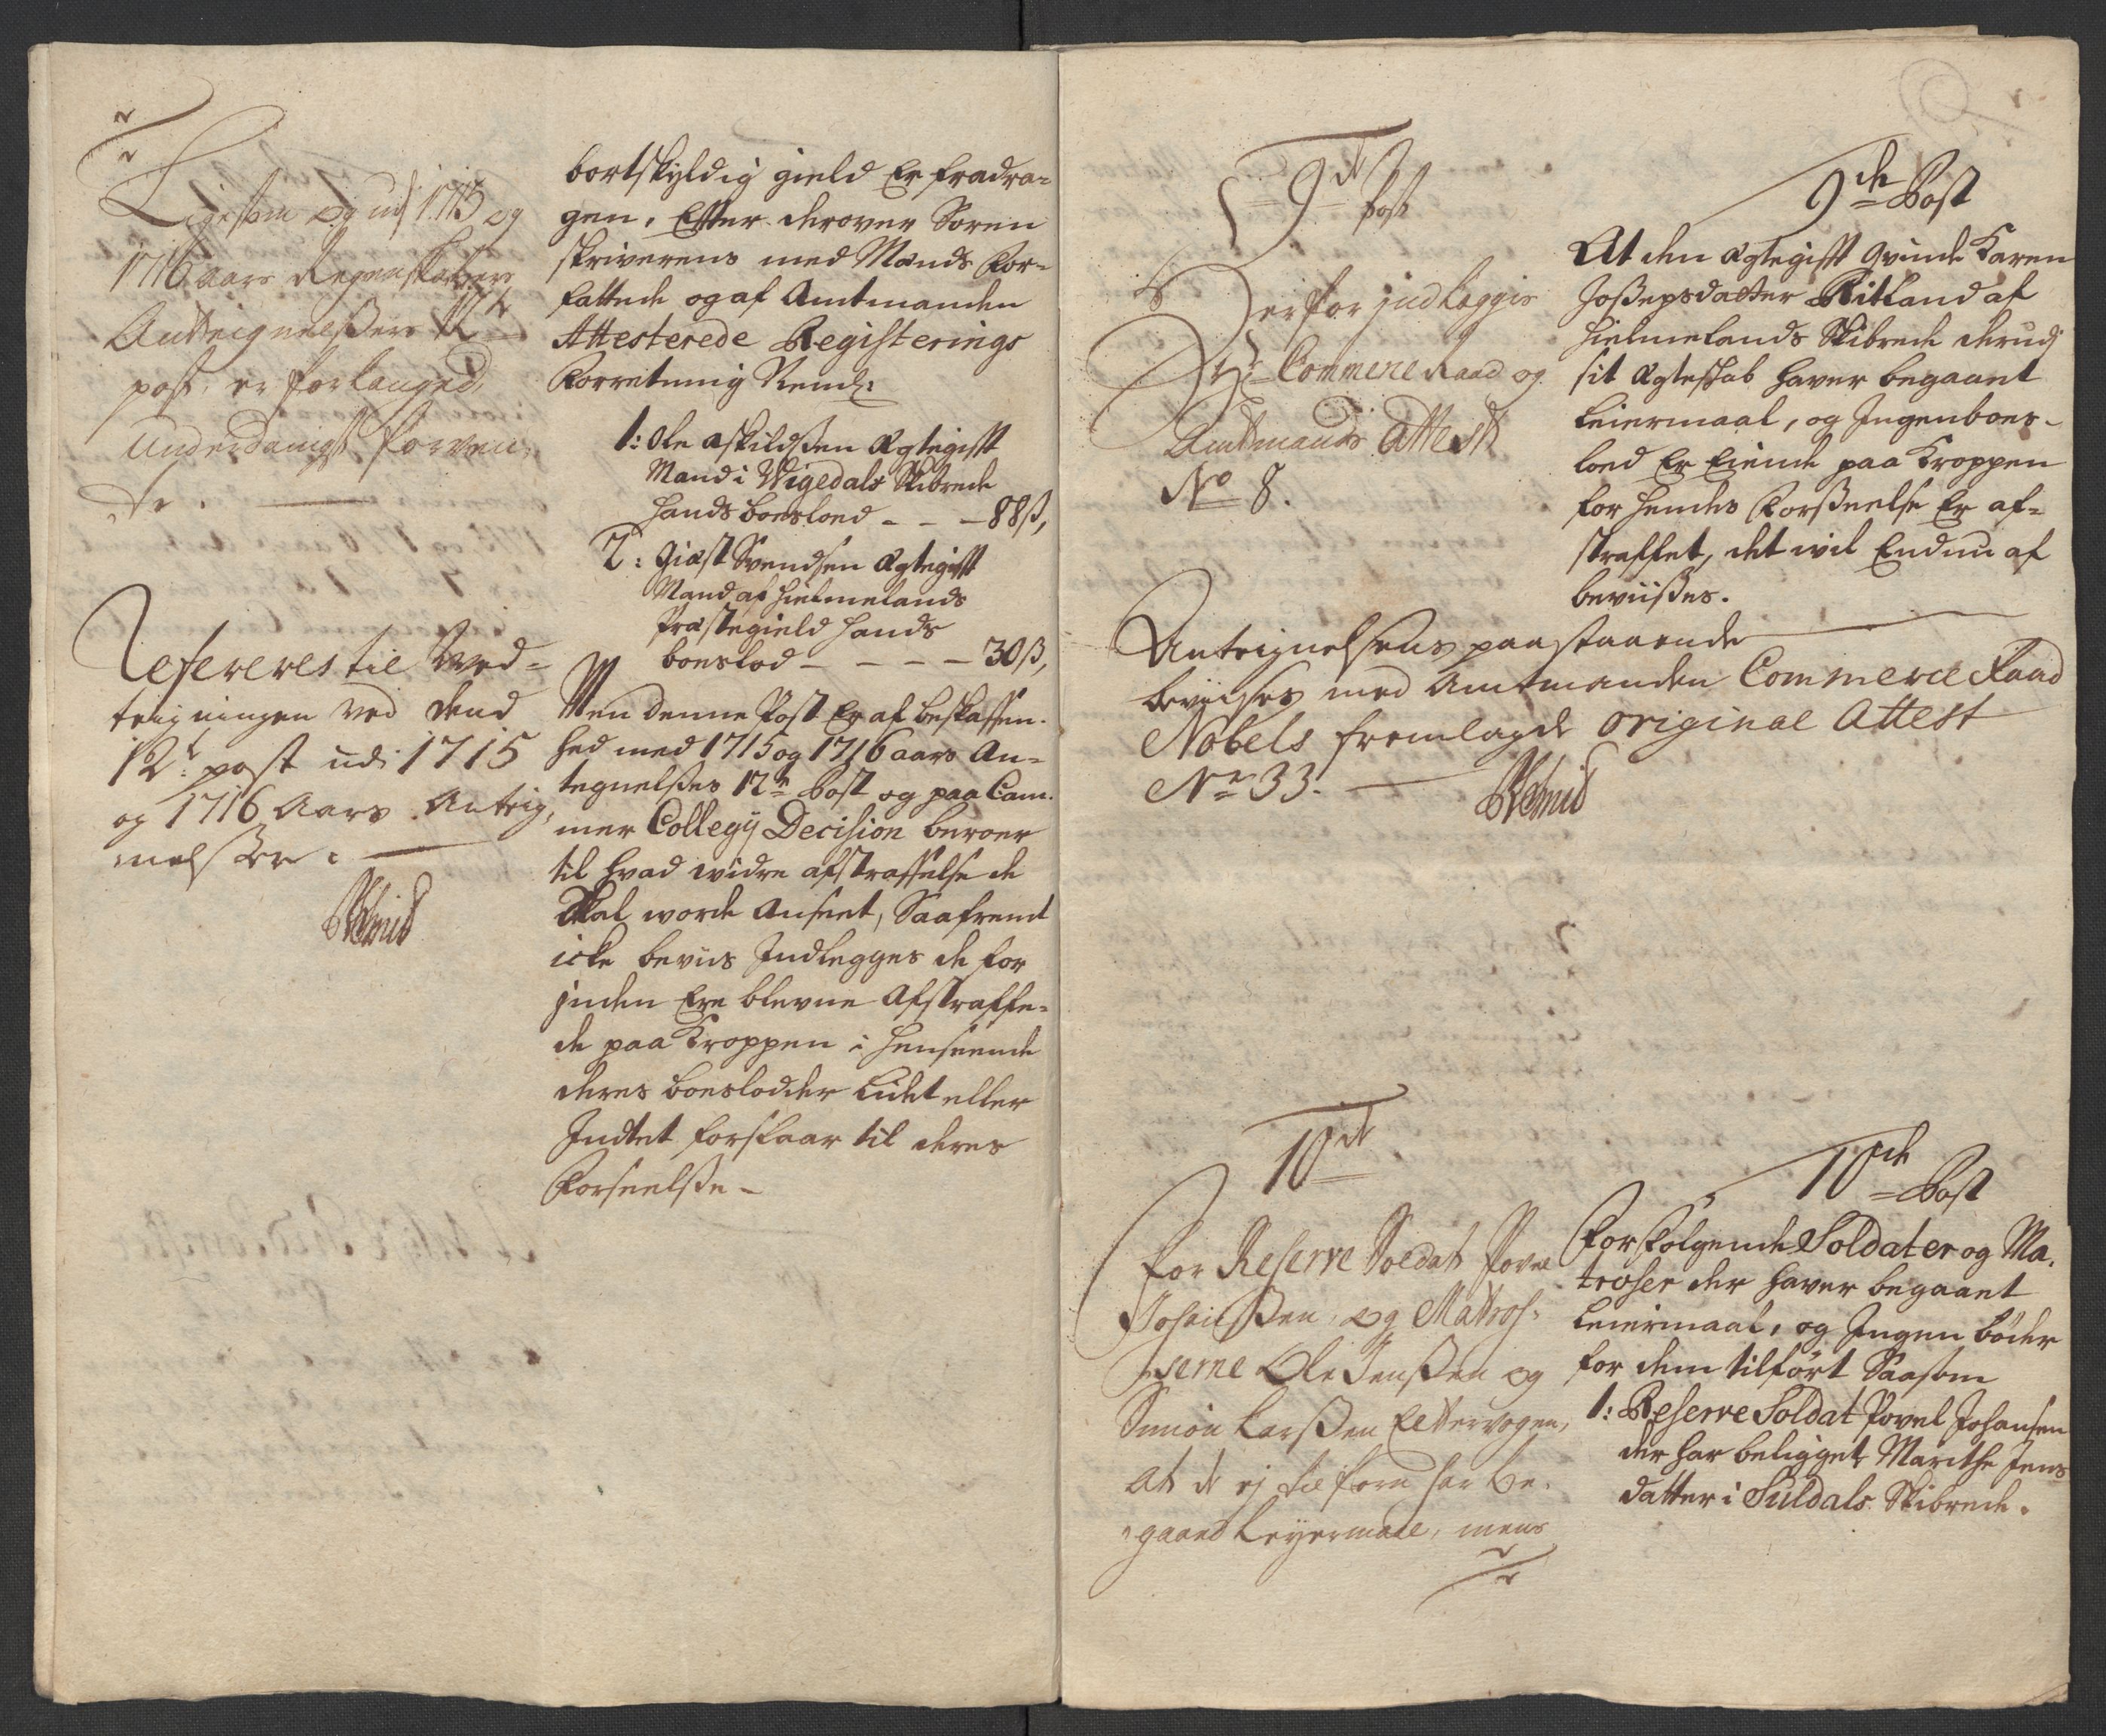 Ligesom og udj 1715 og
1716 aars Regenskabers
Antteignelßers 12te
post, er forlanged,
Underdanigst formen,
de.
Refereres til Sved-
teigningen ved dend
12te post udi 1715
og 1716 Aars Anteig,
nelßer.
bortskyldig gield Er fradra-
gen, Effter derover Soren
skriverens med Mænds For-
fattede og af Amtmanden
Attesterede Registerings
Forretning Neml:
1: Ole Askildßen Ægtegifft
Mand i Wigedals Skibrede
hands boesloed - - - 88 ß,
2: Giæst Svendsen Ægtegifft
Mand af Hielmelands
Præstegield hands
boeslod - - - - 30 ß,
Men denne Post Er af beskaffen-
hed med 1715 og 1716 aars An-
tegnelßes 12te Post og paa Cam-
mer Collegij Decision beroer
til hvad widre afstraffelse de
Skal worde Anseet, Saafremt
icke beviis Indlegges de for
inden Ere blevne Afstraffe-
de paa Kroppen i henseende
deres boeslodder Lidet eller
Indtet forslaar til deres
Forseelße -
9de Post
Herfor jndleggis
Hr Commerce Raad og
Amtmands Attest
No 8.
9de Post
At den Ægtegifft Qvinde Karen
Joßepsdatter Ritland af
Hielmelands Skibrede derudj
sit Ægteskab haver begaaet
Leiermaal, og Ingen boes-
loed Er Eiende paa Kroppen
for hendes Forßeelse Er af-
straffet, det wil Endnu af
beviißes.
Anteignelsens paastaaende
bevißes med Amtmanden Commerce Raad
Nobels fremlagde original Attest
No 33.
10de
For Reserve Soldat Povel
Johanßen, og Mattros-
serne Ole Jenßen og
Simon Larßen
At de ej tilforn har be-
gaaed Leyermaal, mens
10de Post
For følgende Soldater og Ma-
troser der haver begaaet
Leiermaal, og Ingen bøder
for dem tilført Saasom
1: Reserve Soldat Povel Johansen
der har beligget Marithe Jens
datter i Suldals Skibrede.